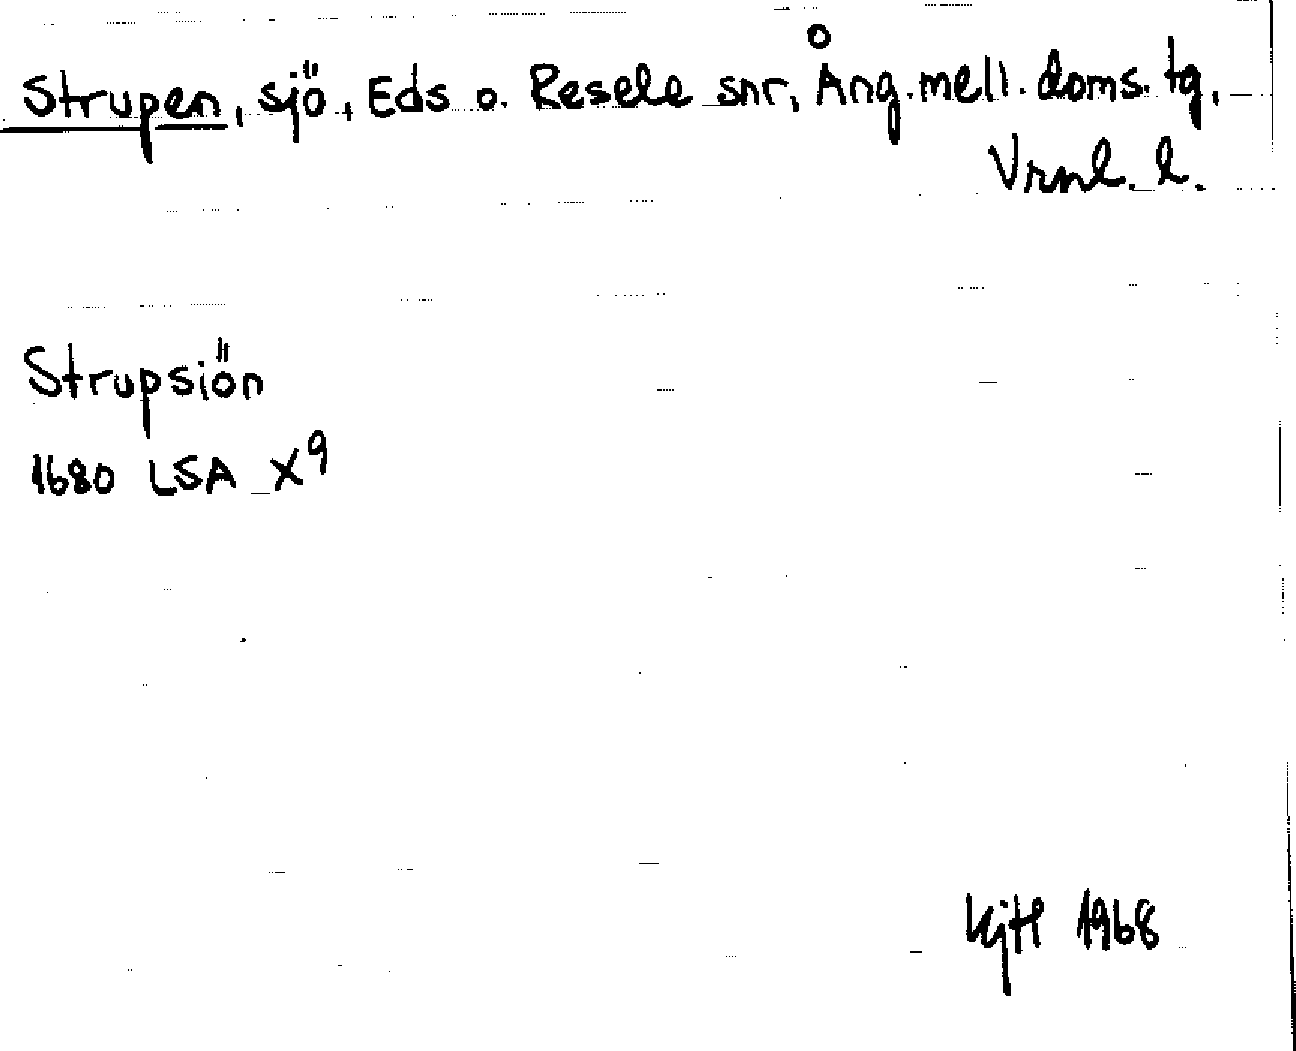 Strupen, sjö, Eds o. Resele snr, Ång. mell. doms. tg,
Vrnl. l.
Strupsiön
1680 LSA X9
1968